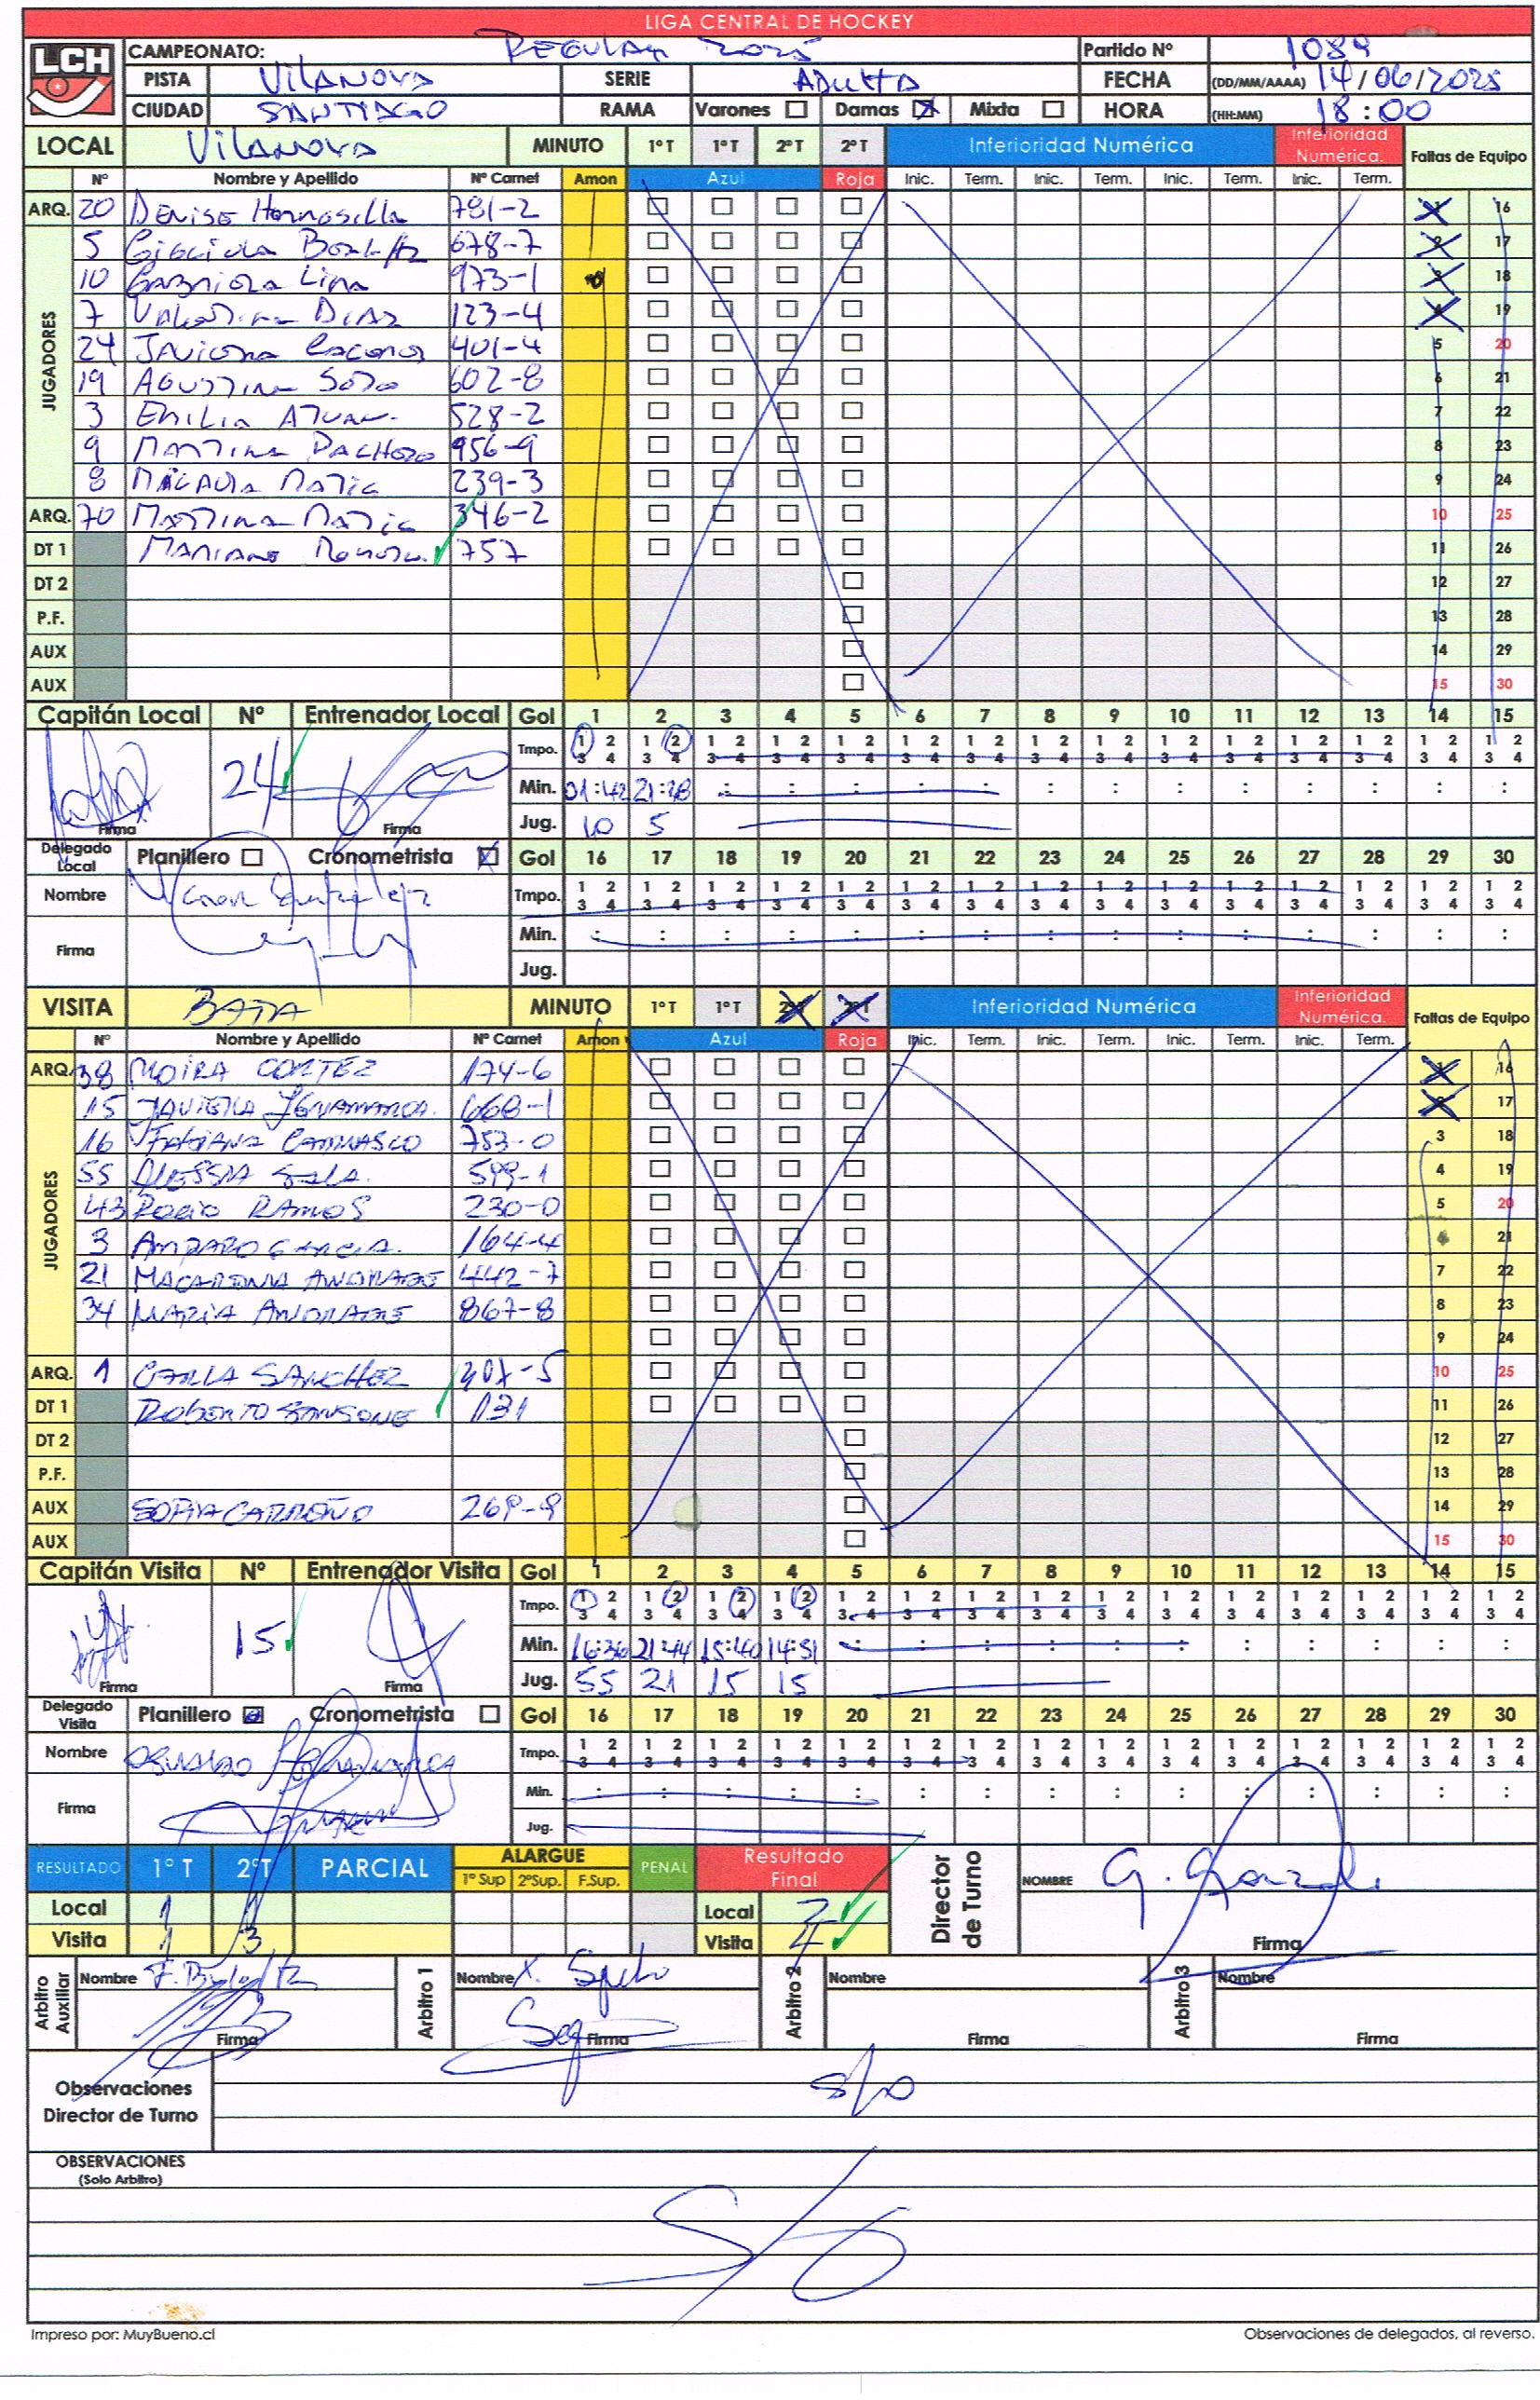 LIGA CENTRAL DE HOCKEY
LCH
CAMPEONATO: REGULAR 2025 Partido Nº 1089
PISTA VILANOVA SERIE ADULTA FECHA (DD/MM/AAAA) 14/06/2025
CIUDAD SANTIAGO RAMA Varones Damas Mixta HORA (HH:MM) 18:00
LOCAL VILANOVA MINUTO 1º T 1º T 2º T 2º T Inferioridad Numérica Inferioridad Numérica. Faltas de Equipo
Nº Nombre y Apellido Nº Carnet Amon Azul Roja Inic. Term. Inic. Term. Inic. Term. Inic. Term.
ARQ. 20 Denise Hermosilla 781-2 1 16
JUGADORES
5 678-7 2 17
10 Gabriela Lina 973-1 3 18
7 Valentina Diaz 123-4 4 19
24 Javiera 401-4 5 20
19 Agustina Soto 602-8 6 21
3 Emilia 528-2 7 22
9 Martina Pacheco 956-9 8 23
8 Matic 239-3 9 24
ARQ. 70 Martina Matic 346-2 10 25
DT 1 Mariano 757 11 26
DT 2 12 27
P.F. 13 28
AUX 14 29
AUX 15 30
Capitán Local Nº Entrenador Local Gol 1 2 3 4 5 6 7 8 9 10 11 12 13 14 15
Tmpo. 1 2 1 2 1 2 1 2 1 2 1 2 1 2 1 2 1 2 1 2 1 2 1 2 1 2 1 2 1 2
3 4 3 4 3 4 3 4 3 4 3 4 3 4 3 4 3 4 3 4 3 4 3 4 3 4 3 4 3 4
24 Min. 01:42 21:18 : : : : : : : : : : : : :
Firma Firma Jug. 10 5
Delegado Local Planillero Cronometrista Gol 16 17 18 19 20 21 22 23 24 25 26 27 28 29 30
Nombre Tmpo. 1 2 1 2 1 2 1 2 1 2 1 2 1 2 1 2 1 2 1 2 1 2 1 2 1 2 1 2 1 2
3 4 3 4 3 4 3 4 3 4 3 4 3 4 3 4 3 4 3 4 3 4 3 4 3 4 3 4 3 4
Firma Min. : : : : : : : : : : : : : : :
Jug.
VISITA BATA MINUTO 1º T 1º T 2º T 2º T Inferioridad Numérica Inferioridad Numérica. Faltas de Equipo
Nº Nombre y Apellido Nº Carnet Amon Azul Roja Inic. Term. Inic. Term. Inic. Term. Inic. Term.
ARQ. 38 MOIRA CORTEZ 174-6 1 16
JUGADORES
15 JAVIERA 668-1 2 17
16 FABIANA CARRASCO 753-0 3 18
55 ALESSIA SALA. 599-1 4 19
43 ROCIO RAMOS 230-0 5 20
3 AMPARO GARCIA. 164-4 6 21
21 MACARENA ANDRADE 442-7 7 22
34 MARIA ANDRADE 867-8 8 23
9 24
ARQ. 1 CARLA SANCHEZ 10 25
DT 1 ROBERTO SANSONE 131 11 26
DT 2 12 27
P.F. 13 28
AUX SOFIA CARREÑO 269-9 14 29
AUX 15 30
Capitán Visita Nº Entrenador Visita Gol 1 2 3 4 5 6 7 8 9 10 11 12 13 14 15
Tmpo. 1 2 1 2 1 2 1 2 1 2 1 2 1 2 1 2 1 2 1 2 1 2 1 2 1 2 1 2 1 2
3 4 3 4 3 4 3 4 3 4 3 4 3 4 3 4 3 4 3 4 3 4 3 4 3 4 3 4 3 4
15 Min. 16:36 21:44 15:40 14:51 : : : : : : : : : : :
Firma Firma Jug. 55 21 15 15
Delegado Visita Planillero Cronometrista Gol 16 17 18 19 20 21 22 23 24 25 26 27 28 29 30
Nombre OSVALDO Tmpo. 1 2 1 2 1 2 1 2 1 2 1 2 1 2 1 2 1 2 1 2 1 2 1 2 1 2 1 2 1 2
3 4 3 4 3 4 3 4 3 4 3 4 3 4 3 4 3 4 3 4 3 4 3 4 3 4 3 4 3 4
Firma Min. : : : : : : : : : : : : : : :
Jug.
RESULTADO 1º T 2ºT PARCIAL ALARGUE 1º Sup 2ºSup. F.Sup. PENAL Resultado Final Director de Turno NOMBRE
Local 1 1 Local 2
Visita 1 3 Visita 4 Firma
Arbitro Auxiliar Nombre Arbitro 1 Nombre Arbitro 2 Nombre Arbitro 3 Nombre
Firma Firma Firma Firma
Observaciones Director de Turno s/o
OBSERVACIONES
(Solo Arbitro)
S/O
Impreso por: MuyBueno.cl Observaciones de delegados, al reverso.